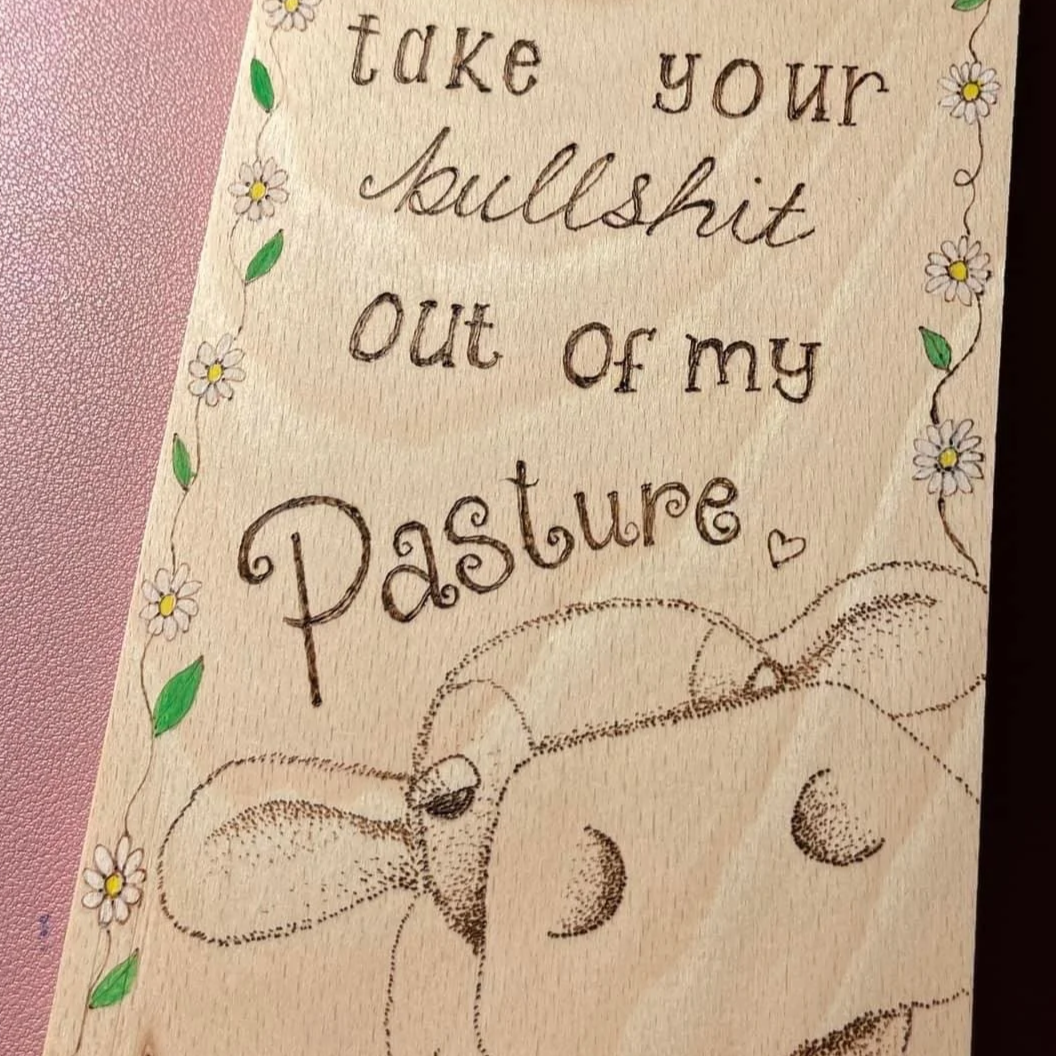 take your
bullshit
out of my
Pasture